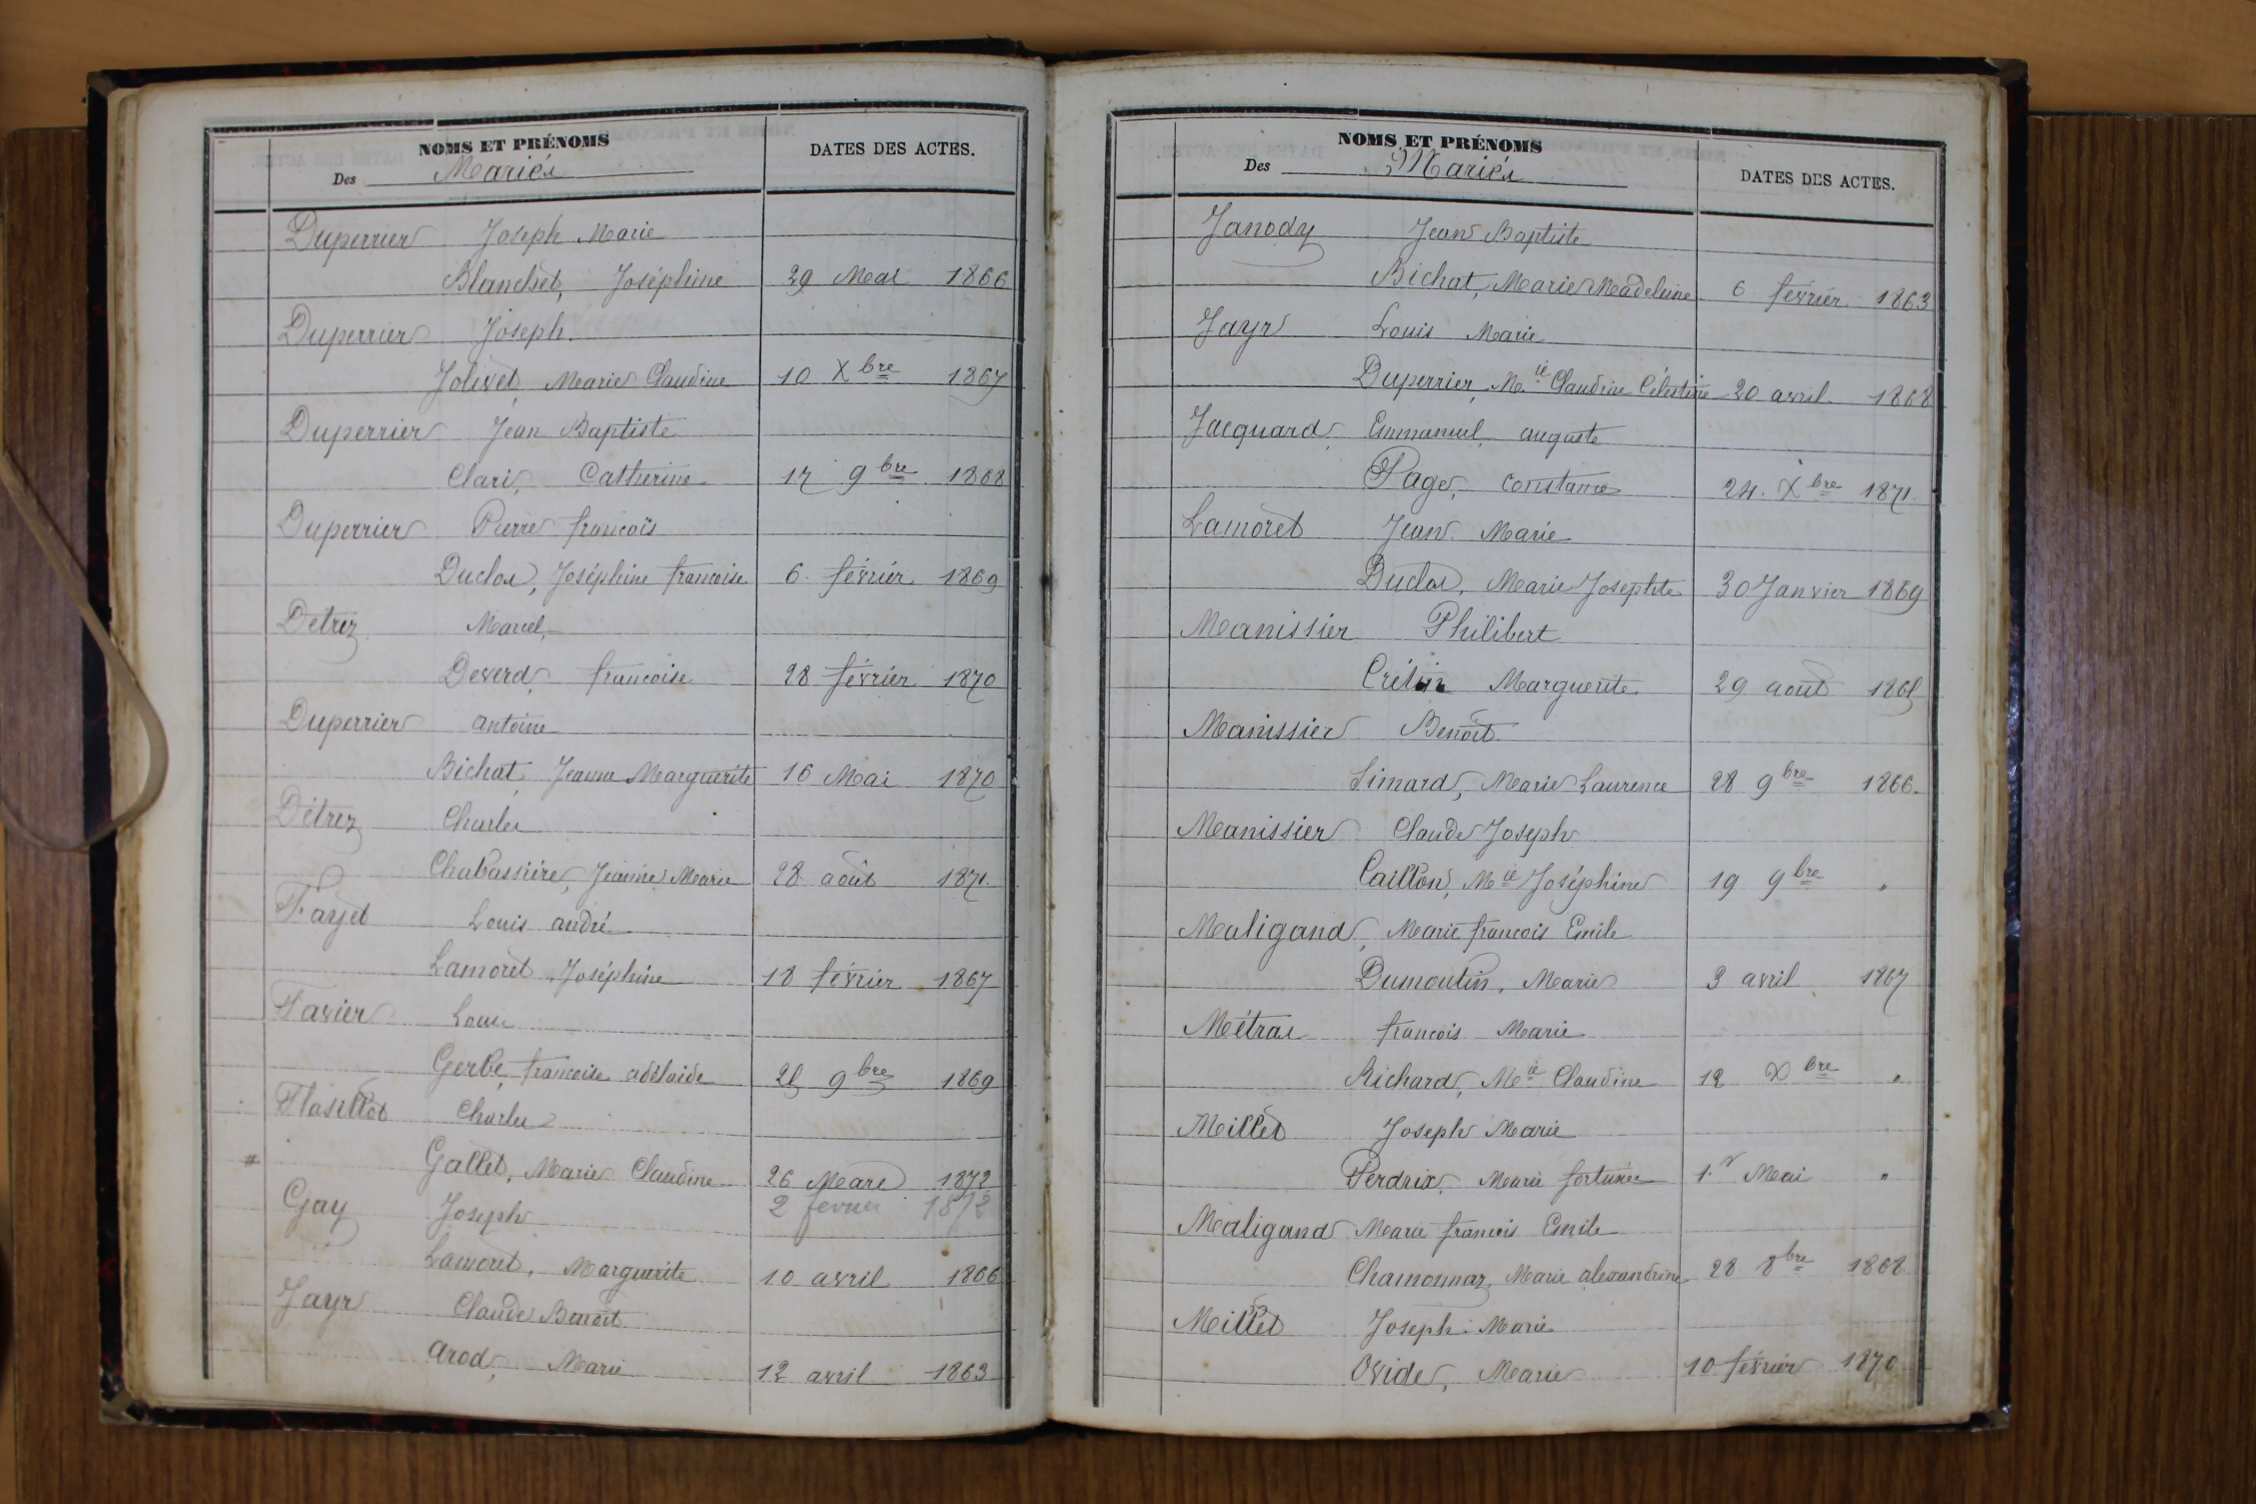 NOMS ET PRÉNOMS
Des Mariés
DATES DES ACTES.
Duperrier Joseph Marie
Blanchet, Joséphine 29 Mai 1866
Duperrier Joseph
Jolivet, Marie Claudine 10 Xbre 1867
Duperrier Jean Baptiste
Clari, Catherine 17 9bre 1868
Duperrier Pierre françois
Duclos, Joséphine francoise 6 février 1869
Détrez Marcel,
Deverd, francoise 28 février 1870
Duperrier antoine
Bichat, Jeanne Marguerite 16 Mai 1870
Détrez Charles
Chabassière, Jeanne Marie 28 août 1871.
Fayet Louis andré
Lamoret Joséphine 18 février 1867
Favier Louis
Gerbe, francoise adélaide 25 9bre 1869
Flasillet Charles
Gallet, Marie Claudine 26 Mars 1872
2 fevrier 1872
Gay Joseph
Lamoret, Marguerite 10 avril 1866
Jayr Claude Benoit
arod, Marie 12 avril 1863
NOMS ET PRÉNOMS
Des Mariés
DATES DES ACTES.
Janody Jean Baptiste
Bichat, Marie Madeleine 6 février 1863
Jayr Louis Marie
Duperrier, Mie Claudine Célestine 20 avril 1868
Jacquard Emmanuel auguste
Page, constance 24 Xbre 1871
Lamoret Jean Marie
Duclos, Marie Josephte 30 Janvier 1869
Manissier Philibert
Crétin Marguerite 29 août 1865
Manissier Benoit
Simard, Marie Laurence 28 9bre 1866.
Manissier Claude Joseph
Caillon, Mie Joséphine 19 9bre "
Maligand, Marie francois Emile
Dumoulin, Marie 3 avril 1867
Métras françois Marie
Richard, Mie Claudine 12 Xbre "
Millet Joseph Marie
Perdrix, Marie fortunée 1.r Mai "
Maligand Marie francois Emile
Chamonnaz, Marie alexandrine 28 8bre 1868
Millet Joseph Marie
Ovide, Marie 10 février 1870